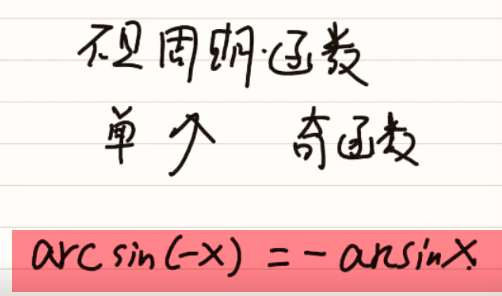 不是周期函数
单个 奇函数
arcsin(-x) = - arcsinx